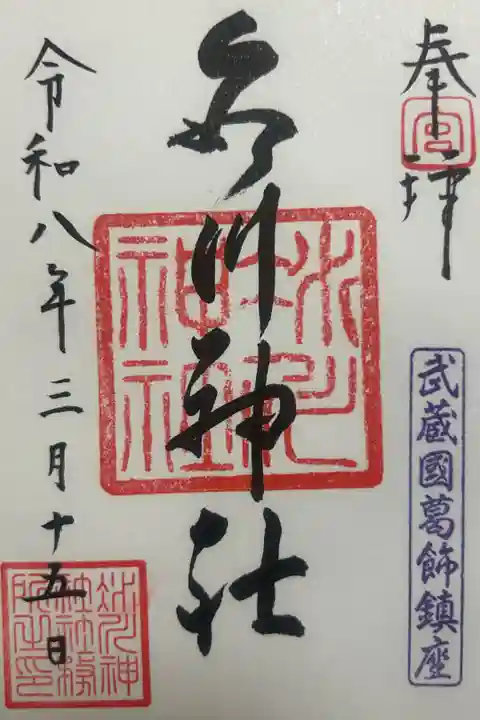 奉拝
宮
武蔵國葛飾鎮座
氷川神社
氷川神社
令和八年三月十五日
氷川神
社社務
所之印